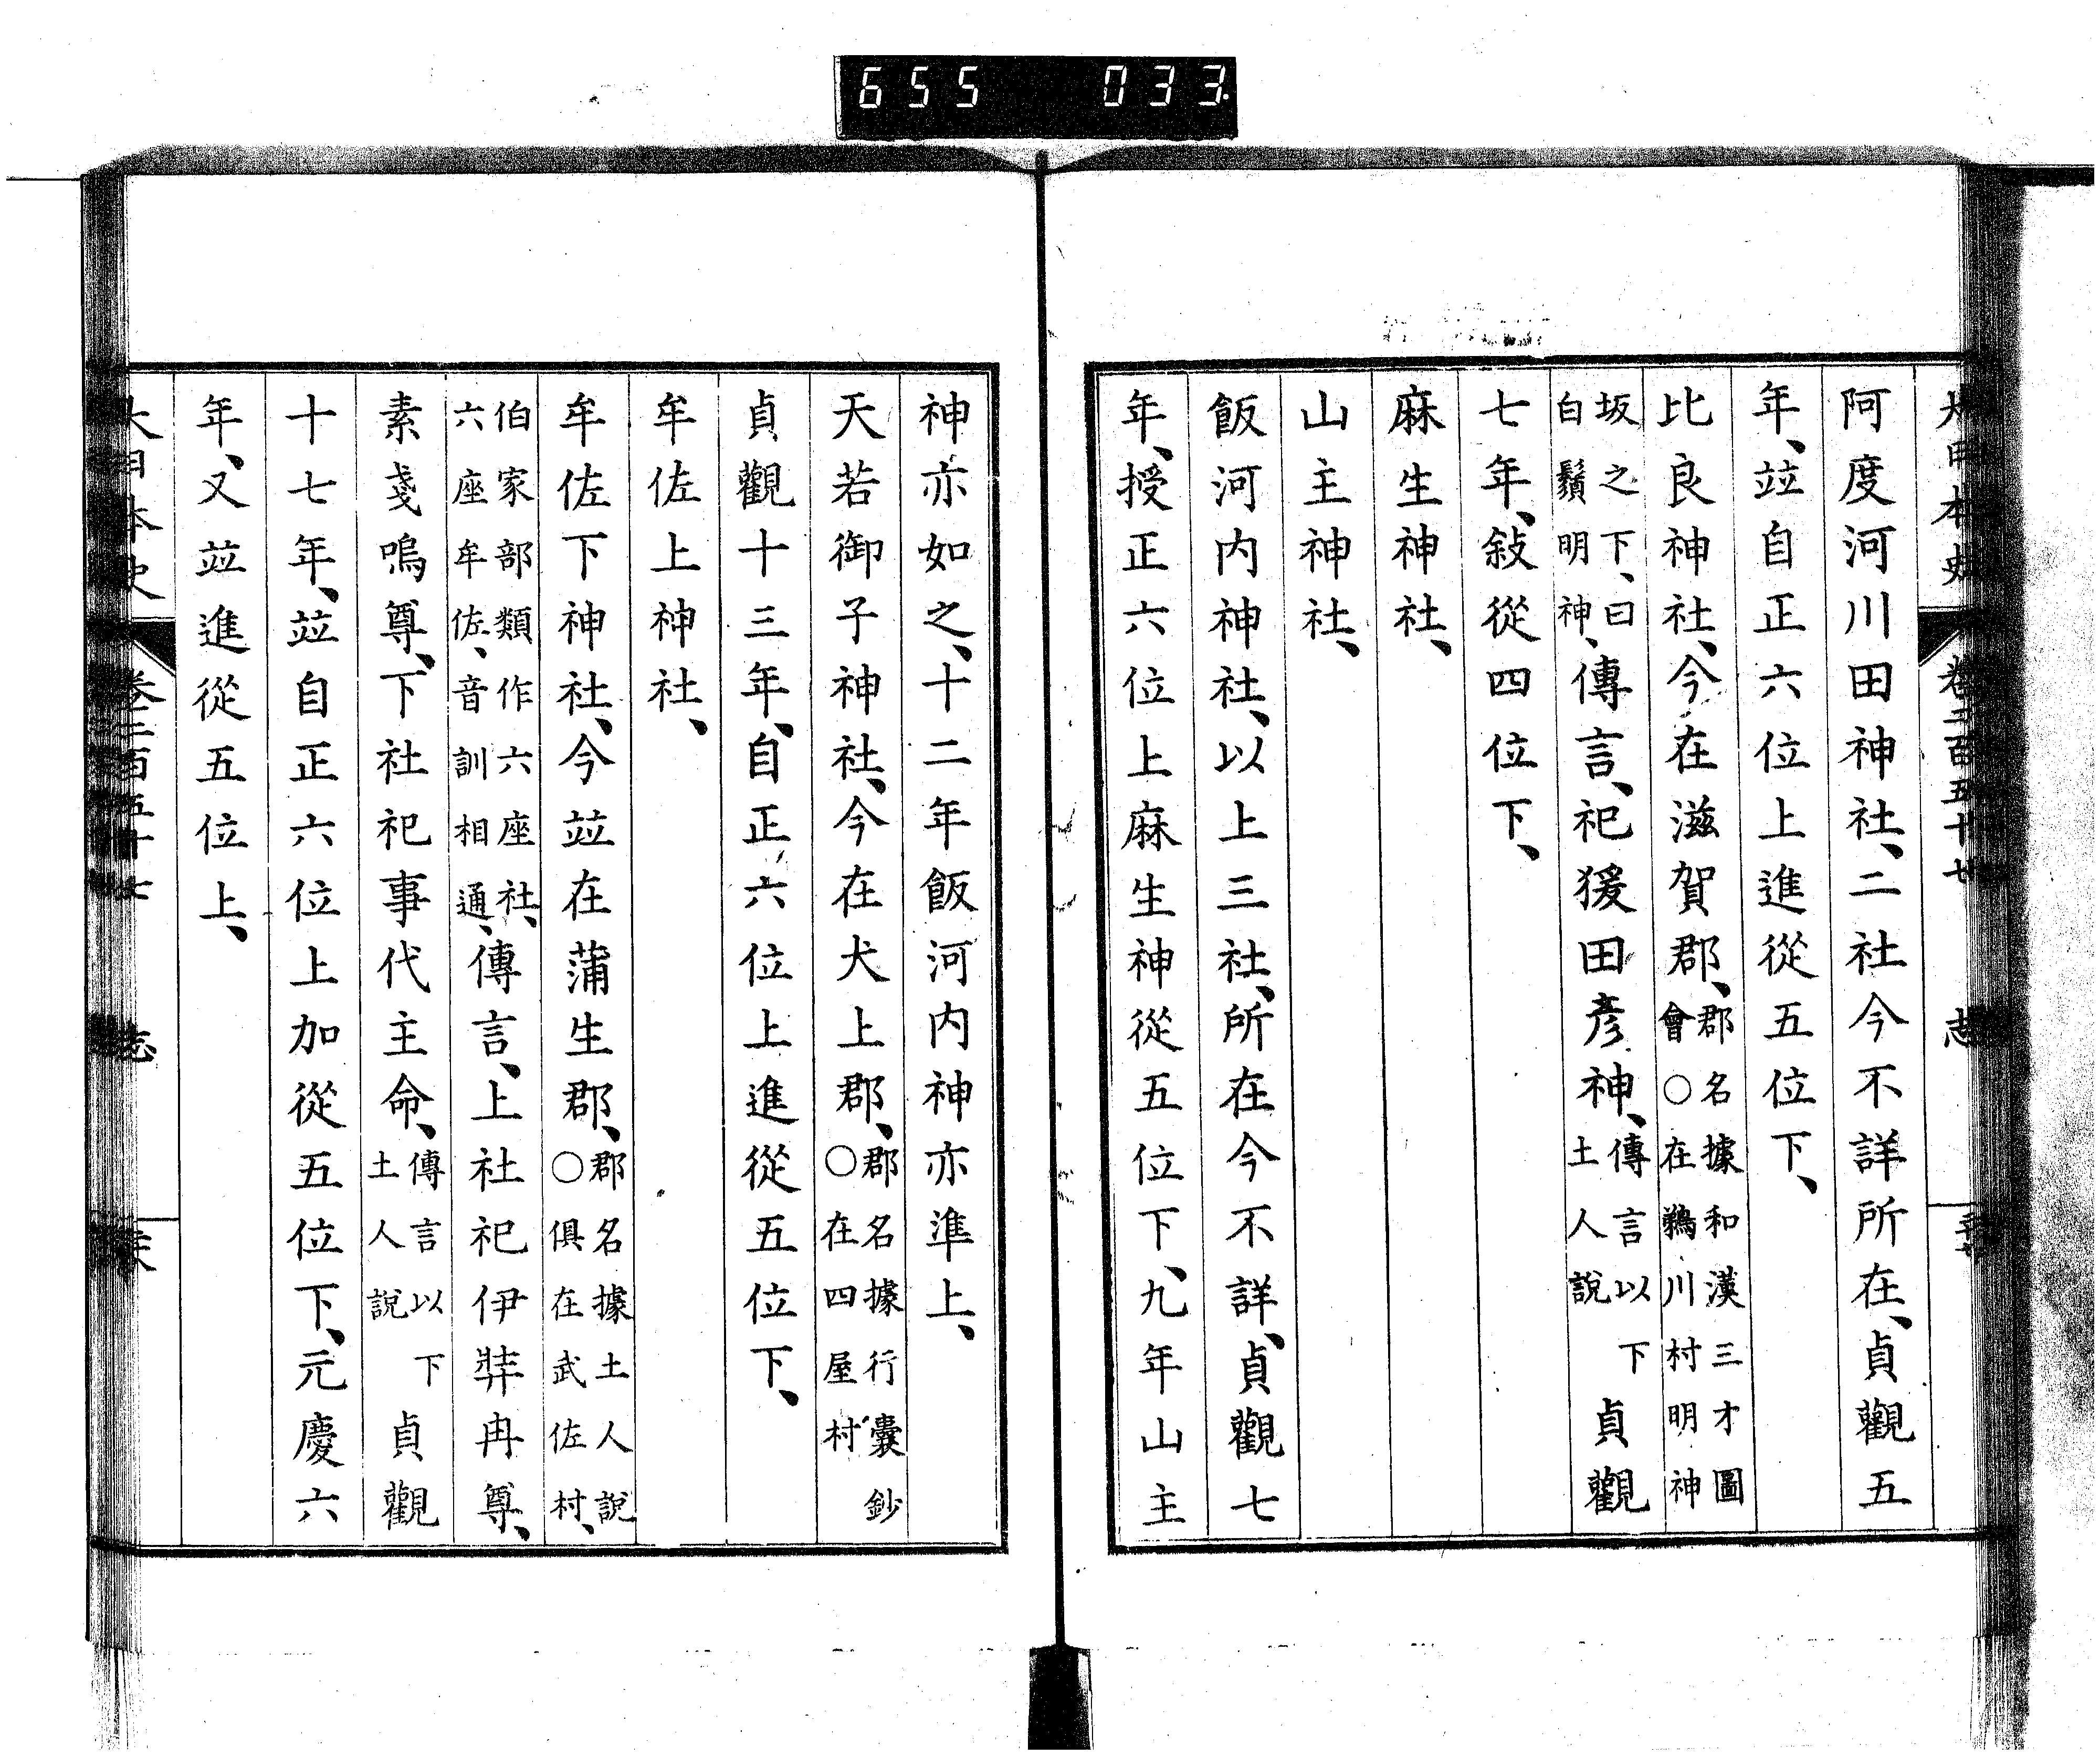 655 033
大日本史 卷二百五十七 志
阿度河川田神社、二社今不詳所在、貞觀五
年、竝自正六位上進從五位下、
比良神社、今在滋賀郡、郡名據和漢三才圖會○在鵜川村明神
坂之下、曰白鬚明神、傳言、祀猨田彥神、傳言以下土人說貞觀
七年、敍從四位下、
麻生神社、
山主神社、
飯河內神社、以上三社、所在今不詳、貞觀七
年、授正六位上麻生神從五位下、九年山主
神亦如之、十二年飯河內神亦準上、
天若御子神社、今在犬上郡、郡名據行囊鈔○在四屋村
貞觀十三年、自正六位上進從五位下、
牟佐上神社、
牟佐下神社、今竝在蒲生郡、郡名據土人說○俱在武佐村、
伯家部類作六座社、六座牟佐、音訓相通、傳言、上社祀伊弉冉尊、
素戔嗚尊、下社祀事代主命、傳言以下土人說貞觀
十七年、竝自正六位上加從五位下、元慶六
年、又竝進從五位上、
大日本史 卷二百五十七 志